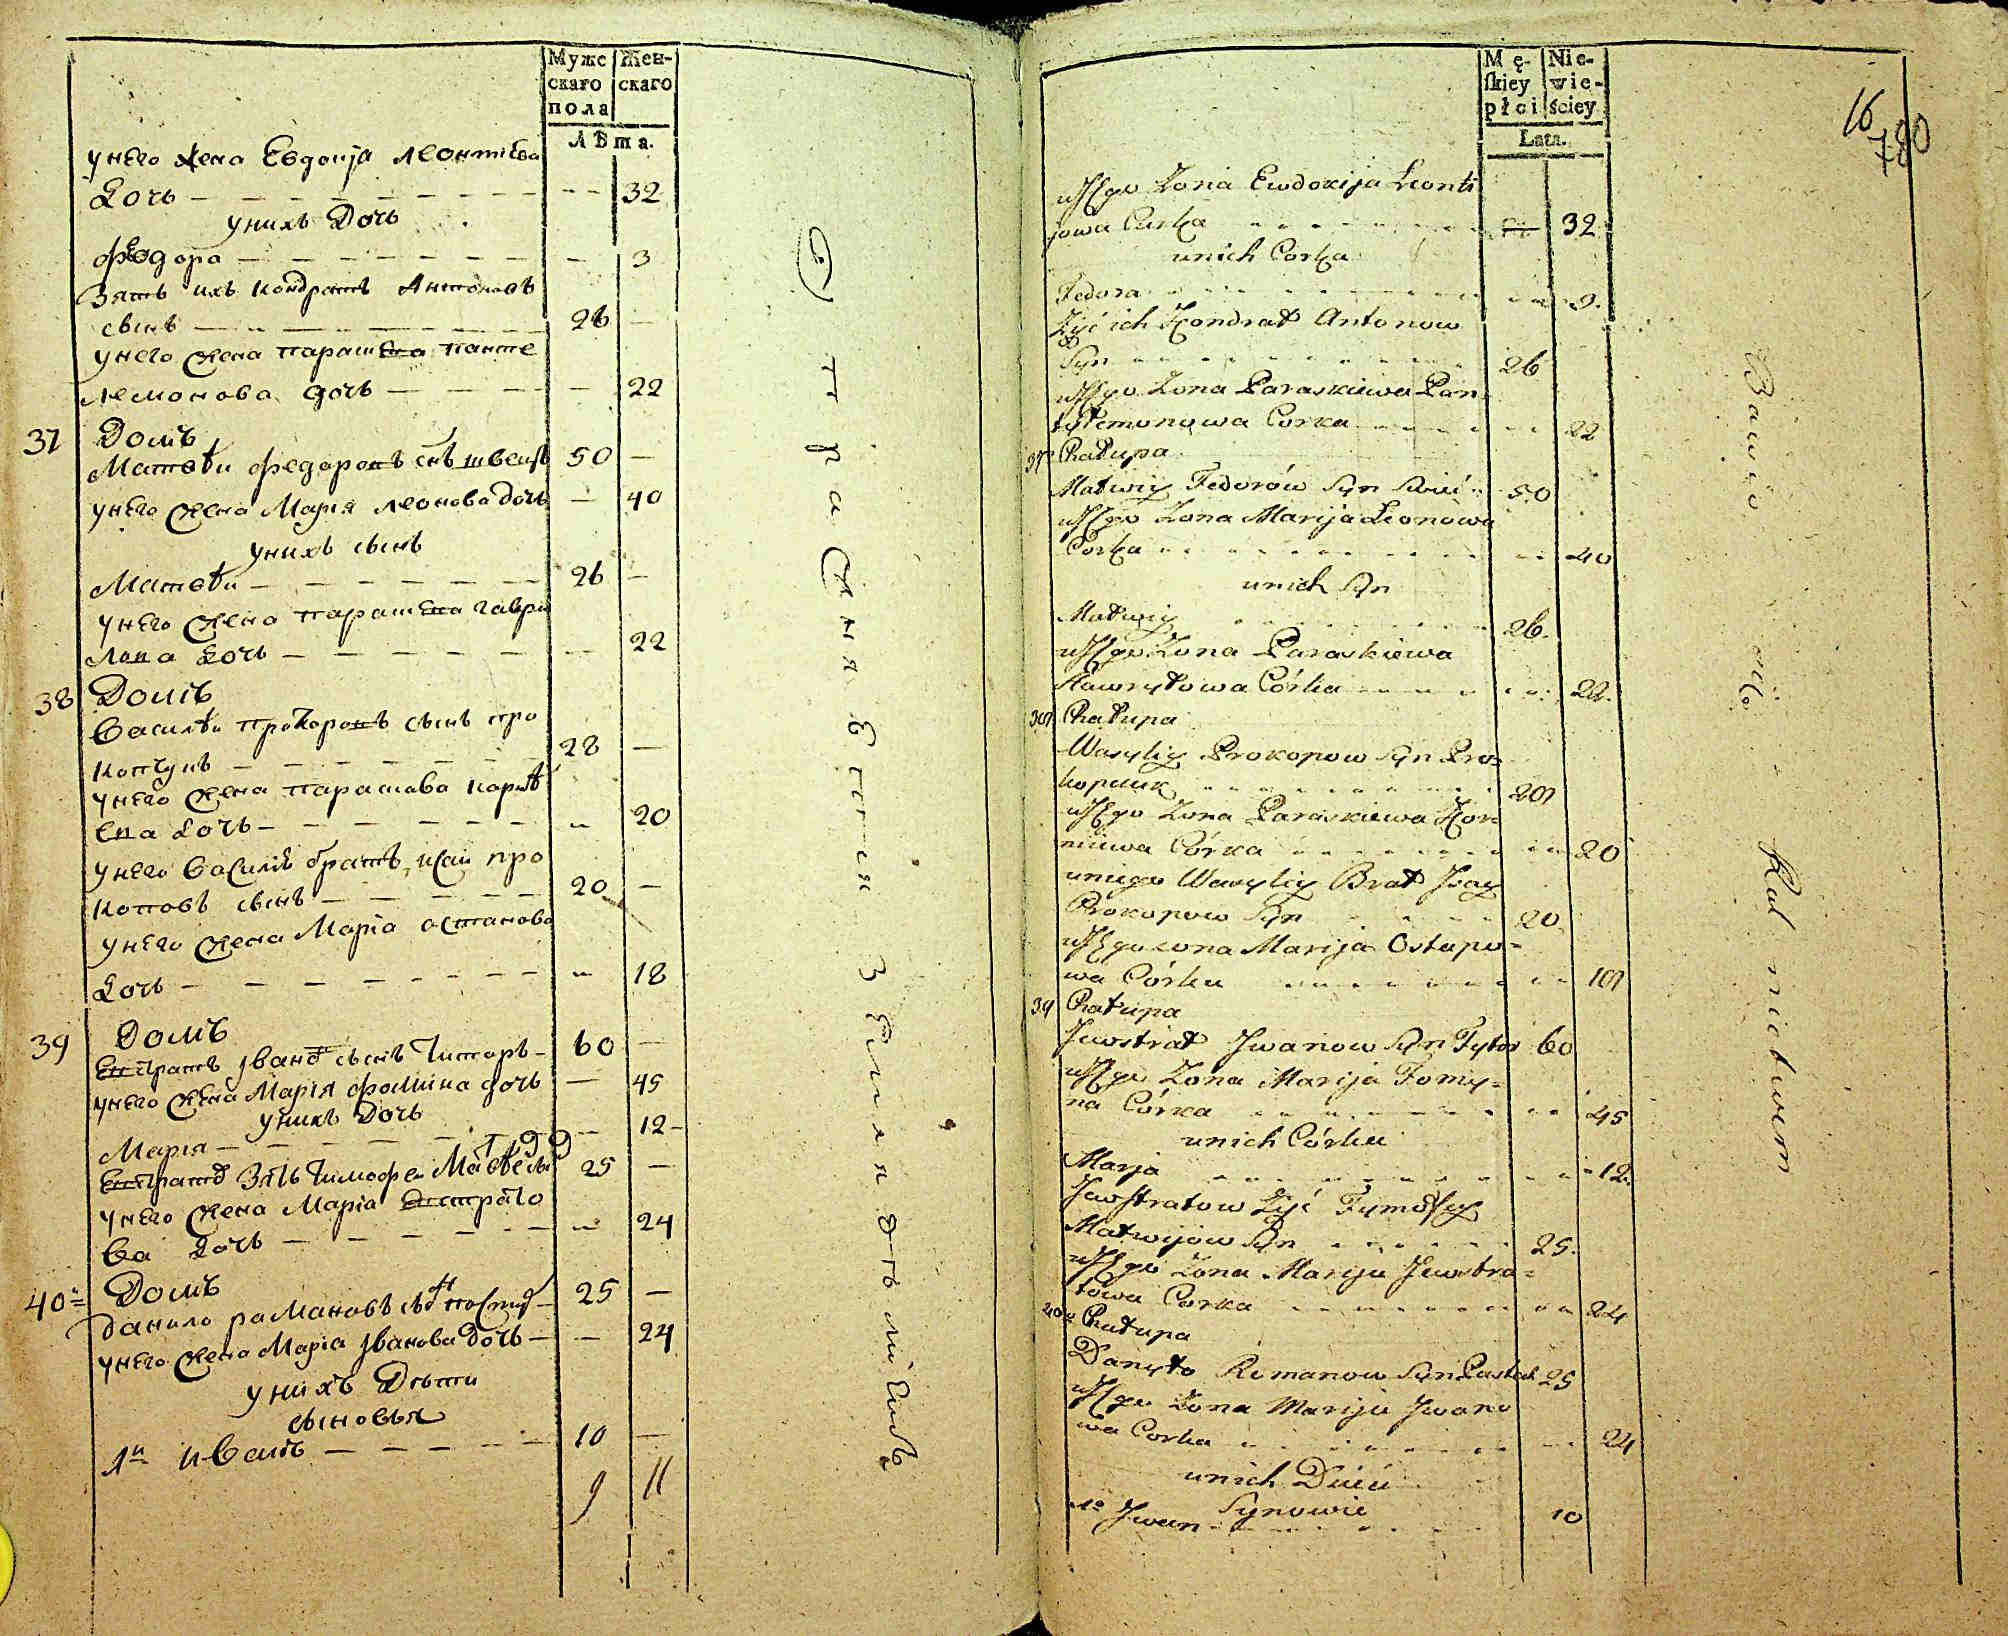 Муже
скаго
пола
Жен-
скаго
Лѣта.
унего жена Евдокія леонтіева
Дочь - - 32
унихъ Дочь
Федора - - 3
Зять ихъ кондратъ Антоновъ
сынъ - 26 -
унего жена параскева панте
лемонова дочь - - 22
37 Домъ
Матвѣи федоровъ снъ швецъ 50 -
унего жена Марія леонова дочь - 40
унихъ сынъ
Матвѣи - 26 -
унего жена параскева гаври
лова Дочь - - 22
38 Домъ
Василѣи прокоровъ сынъ про
копчукъ - 28 -
унего жена параскева корнѣ
ева дочь - - 20
унего Василія братъ исаи про
коповъ сынъ - 20 -
унего жена Марія остапова
Дочь - - 18
39 Домъ
Евстратъ Ивановъ сынъ Титоръ - 60 -
унего жена Марія фомина дочь - 45
унихъ Дочь
Марія - - 12 -
Евстратовъ Зять тимофеи 25 -
унего жена Марія Евстрато
ва Дочь - - 24
40 Домъ
данило романовъ сынъ 25 -
унего жена Марія Иванова дочь - - 24
унихъ Дѣти
сыновья
1и иванъ - 10 -
9 11
Стражня Евгения Зелиния
Mę-
skiey
płci
Nie-
wie-
ściey
Lata.
16
780
u Jego Zona Ewdokija Leonti
jowa Curka - - 32
unich Corka
Fedora - - 3.
Zyć ich Kondrat Antonow
Syn - 26
u Jego Zona Paraskiewa Pan
tylemonowa Corka - - 22
37 Chałupa
Matwiy Fedorów Syn Swić 50
u Jego Zona Marija Leonowa
Corka - - 40
unich Syn
Matwiy - 26.
u Jego Zona Paraskiewa
Hawryłowa Córka - - 22.
38 Chałupa
Wasyliy Prokopow Syn Pro-
kopczuk - 28
u Jego Zona Paraskiewa Kor
niiwa Córka - - 20
uniego Wasyliy Brat Isay
Prokopow Syn - 20.
u Jego zona Marija Ostapo-
wa Córka - - 18
39 Chałupa
Jewstrat Iwanow Syn Tytor 60
u Jego Zona Marija Fomy-
na Córka - - 45
unich Córka
Marja - - 12.
Jewstratow Zyć Tymofey
Matwijow Syn - 25.
u Jego Zona Marija Jewstra-
towa Corka - - 24
40 Chałupa
Danyło Romanow Syn Pastuch 25
u Jego Zona Marija Iwano
wa Corka - - 24
unich Dzieci
Synowie
1o Iwan - 10